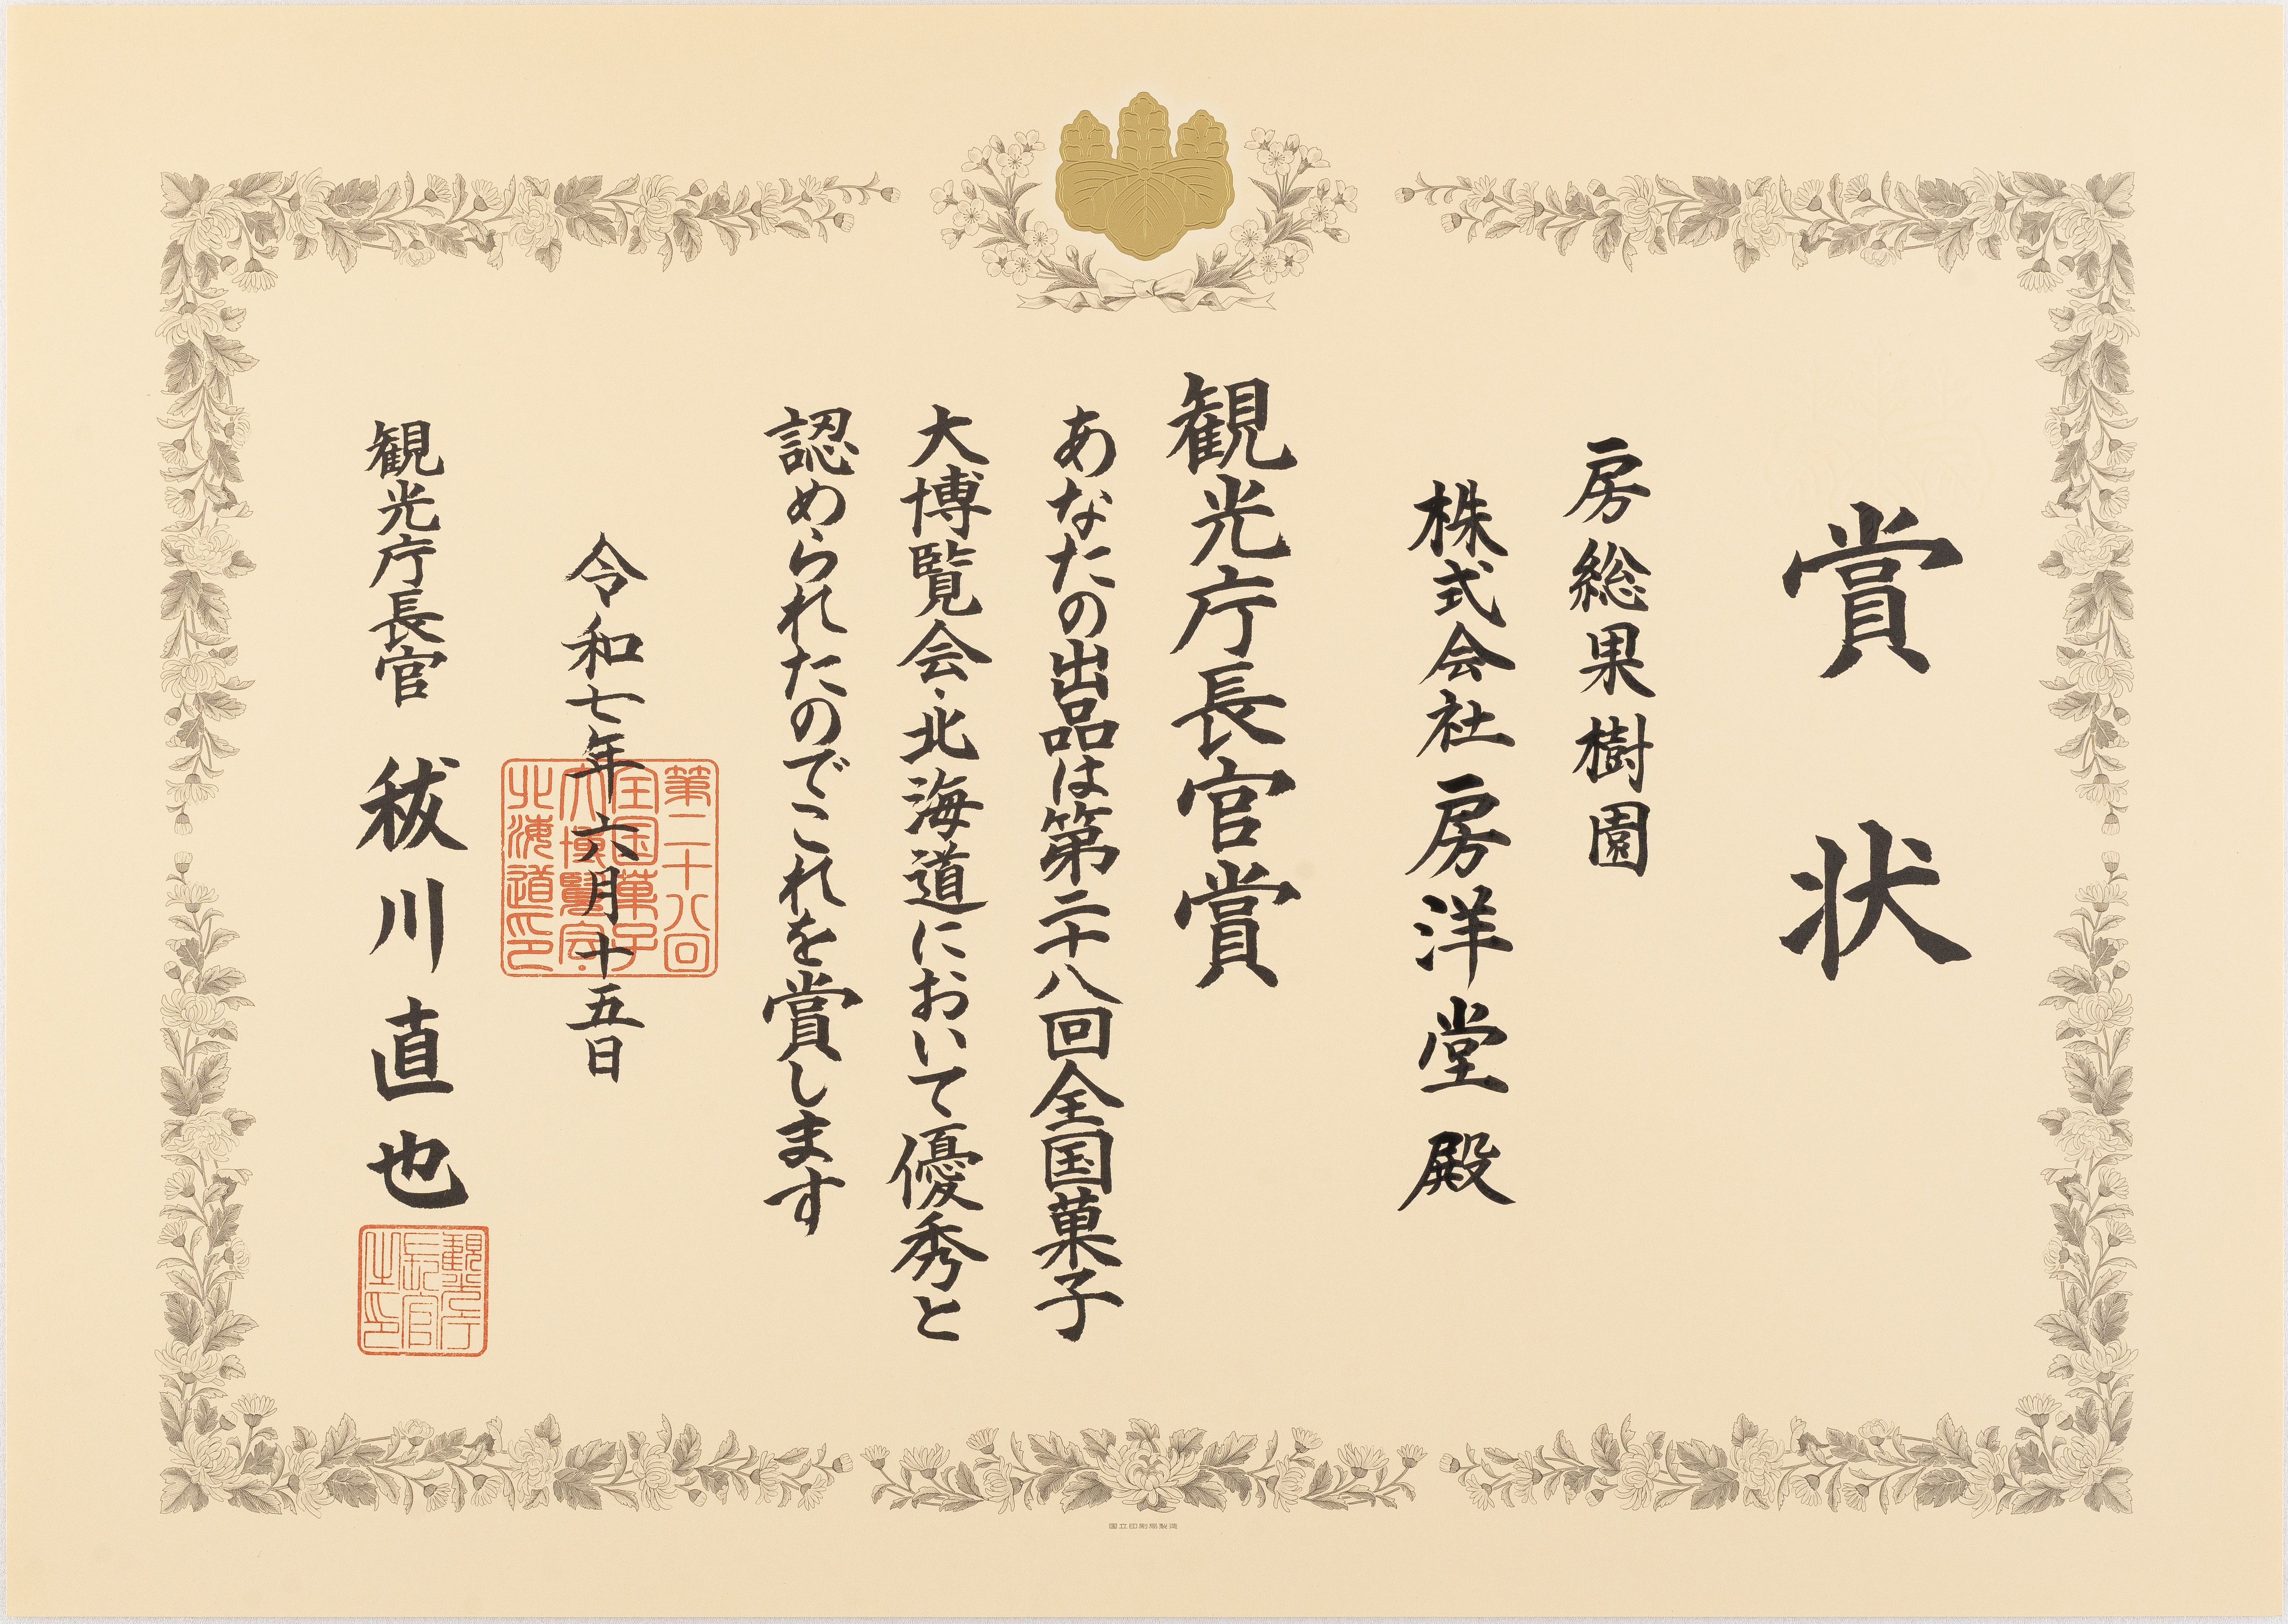 賞状
房総果樹園
株式会社房洋堂 殿
観光庁長官賞
あなたの出品は第二十八回全国菓子
大博覧会・北海道において優秀と
認められたのでこれを賞します
令和七年六月十五日
第二十八回
全国菓子
大博覧会
北海道印
観光庁長官 秡川直也
観光庁
長官
之印
国立印刷局製造